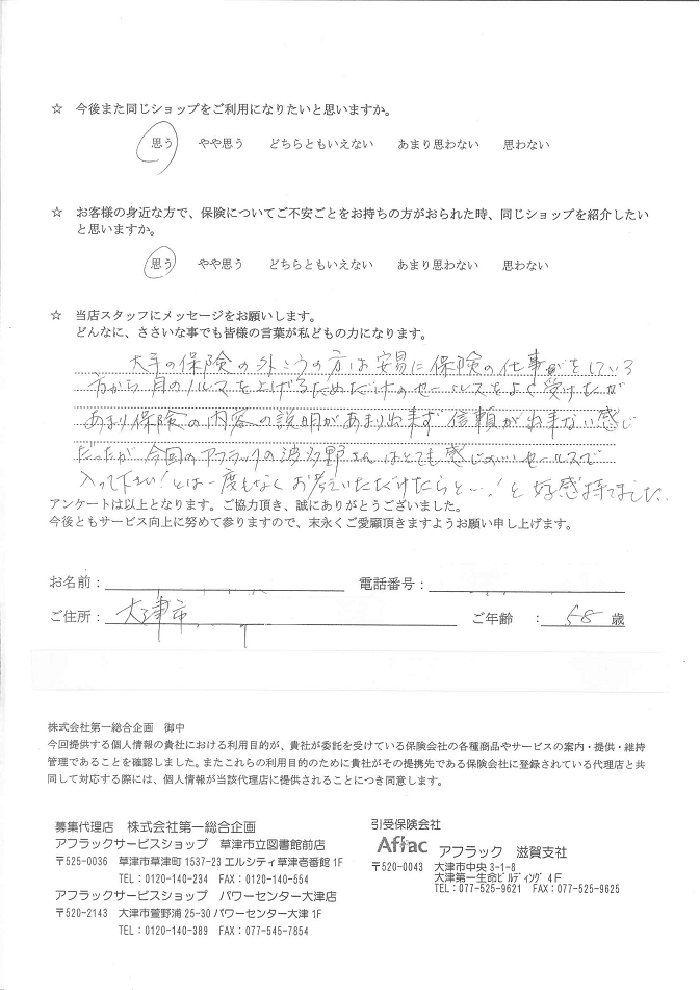 ☆ 今後また同じショップをご利用になりたいと思いますか。
思う やや思う どちらともいえない あまり思わない 思わない
☆ お客様の身近な方で、保険についてご不安ごとをお持ちの方がおられた時、同じショップを紹介したい
と思いますか。
思う やや思う どちらともいえない あまり思わない 思わない
☆ 当店スタッフにメッセージをお願いします。
どんなに、ささいな事でも皆様の言葉が私どもの力になります。
大手の保険の外こうの方は安易に保険の仕事をしている
方から月のノルマを上げるためだけのセールスをよく受けたが
あまり保険の内容の説明があまり出来ず信頼が出来ない感じ
だったが今回のアフラックの波多野さんはとても感じのいいセールスで
入って下さい!とは一度もなくお考えいただけたらと…!と好感持てました。
アンケートは以上となります。ご協力頂き、誠にありがとうございました。
今後ともサービス向上に努めて参りますので、末永くご愛顧頂きますようお願い申し上げます。
お名前: 電話番号:
ご住所: 大津市 ご年齢 : 58 歳
株式会社第一総合企画 御中
今回提供する個人情報の貴社における利用目的が、貴社が委託を受けている保険会社の各種商品やサービスの案内・提供・維持
管理であることを確認しました。またこれらの利用目的のために貴社がその提携先である保険会社に登録されている代理店と共
同して対応する際には、個人情報が当該代理店に提供されることにつき同意します。
募集代理店 株式会社第一総合企画
アフラックサービスショップ 草津市立図書館前店
〒525-0036 草津市草津町1537-23 エルシティ草津壱番館1F
TEL:0120-140-234 FAX:0120-140-554
アフラックサービスショップ パワーセンター大津店
〒520-2143 大津市萱野浦25-30 パワーセンター大津1F
TEL:0120-140-389 FAX:077-545-7854
引受保険会社
Aflac アフラック 滋賀支社
〒520-0043 大津市中央3-1-8
大津第一生命ビルディング4F
TEL:077-525-9621 FAX:077-525-9625